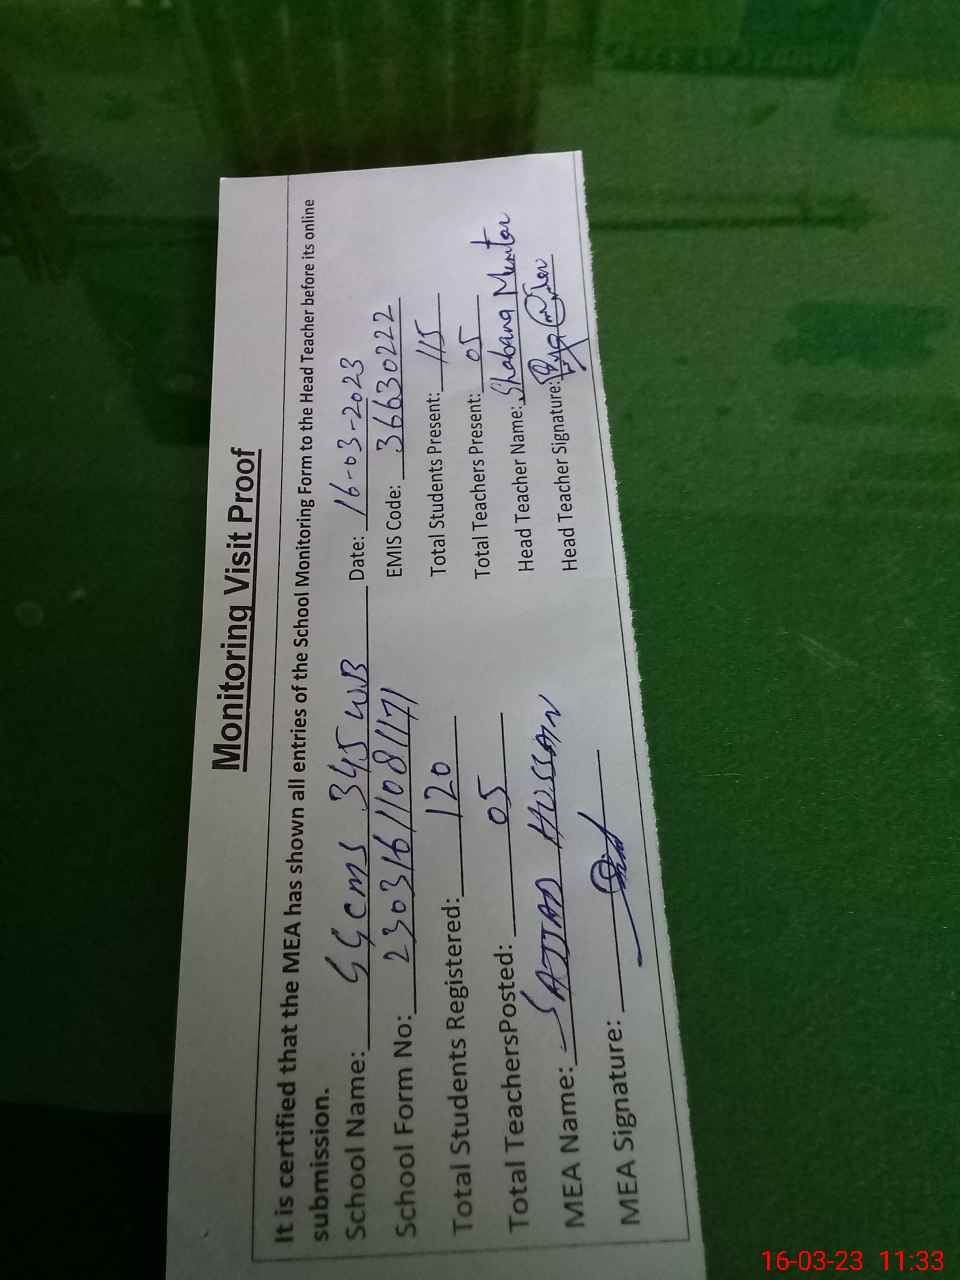 Monitoring Visit Proof
It is certified that the MEA has shown all entries of the School Monitoring Form to the Head Teacher before its online
submission.
School Name: GGCMS 345 WB Date: 16-03-2023
School Form No: 230316110811171 EMIS Code: 36630222
Total Students Registered: 120 Total Students Present: 115
Total TeachersPosted: 05 Total Teachers Present: 05
MEA Name: SAJJAD HUSSAIN Head Teacher Name: Shabana Mumtaz
MEA Signature: Head Teacher Signature:
16-03-23 11:33